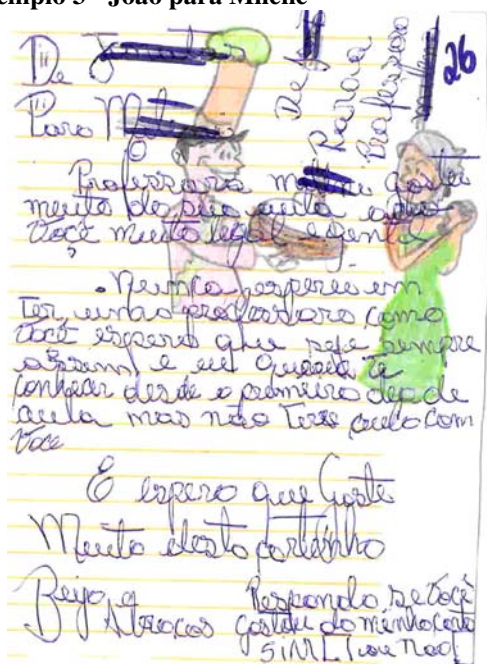 emplo 3 - João para Milene
De
Para M
De J
Para a
Professora
26
Professora gostei
muito da sua aula acho
você muito legal e gentil
Nunca esperei um
Ter, uma professora como
você espero que seje sempre
assim e eu queria te
conhecer desde o primeiro dia de
aula mas não Teve aula com
voce
E espero que Goste
Muito desta cartinha
Beijo e
Abraços
Responda se Você
gostou da minha carta
SIM[ ] ou Nao[